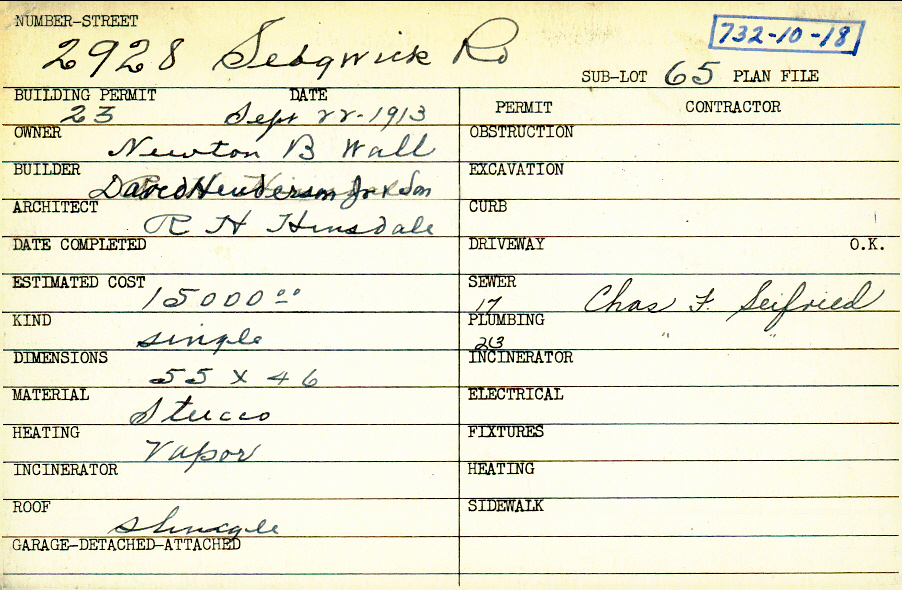 NUMBER-STREET
2928 Sedgwick Rd
732-10-18
SUB-LOT 65 PLAN FILE
BUILDING PERMIT DATE
23 Sept 22-1913
OWNER
Newton B Wall
BUILDER
David Henderson Jr & Son
ARCHITECT
R H Hinsdale
DATE COMPLETED
ESTIMATED COST
15000 00
KIND
single
DIMENSIONS
55 x 46
MATERIAL
Stucco
HEATING
Vapor
INCINERATOR
ROOF
shingle
GARAGE-DETACHED-ATTACHED
PERMIT CONTRACTOR
OBSTRUCTION
EXCAVATION
CURB
DRIVEWAY O.K.
SEWER
17 Chas F. Seifried
PLUMBING " "
213
INCINERATOR
ELECTRICAL
FIXTURES
HEATING
SIDEWALK